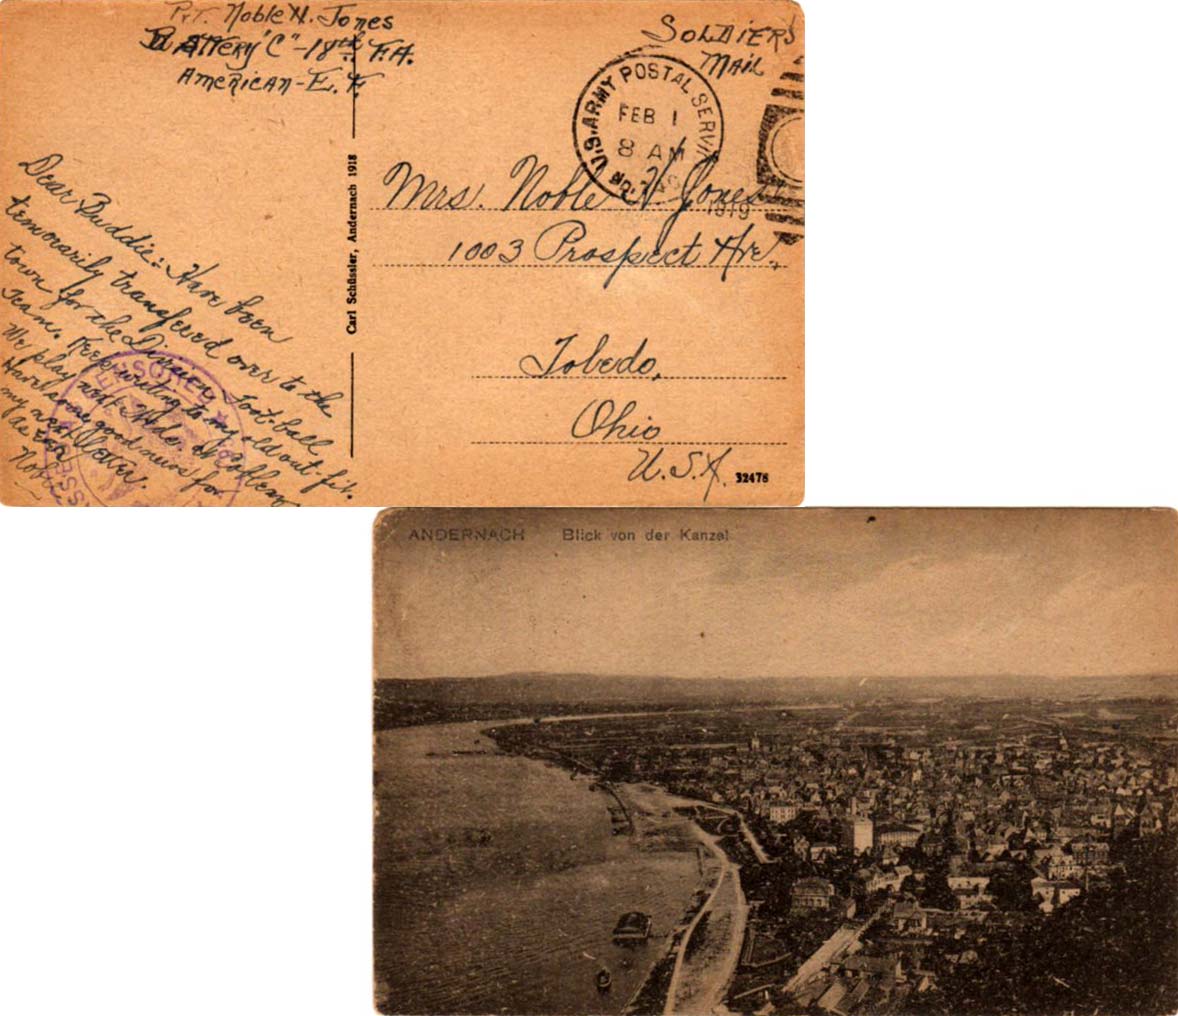 Pvt. Noble H. Jones
Battery "C" - 18th F.A.
American - E. F.
Soldiers
Mail
U.S. ARMY POSTAL SERVI
FEB 1
8 AM
1919
NO. 7
Mrs. Noble H. Jones
1003 Prospect Ave.
Toledo,
Ohio
U.S.A.
32478
Carl Schüssler, Andernach 1918
Dear Buddie: Have been
temorarily transfered over to the
town for the Division Foot-ball
Team. Keep writing to my old out-fit.
We play at Coblenz
Have some good news for
my next letter.
As ever
Noble
CENSORED
ANDERNACH Blick von der Kanzel